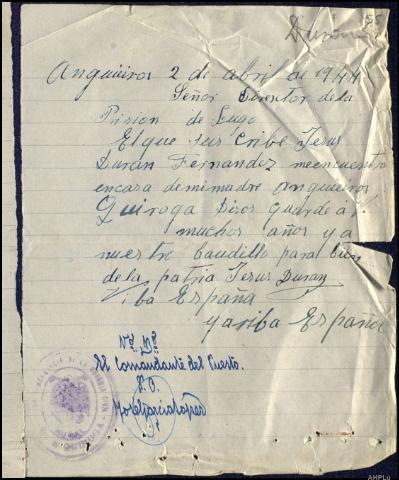 Duran 55
Anguieiros 2 de abril de 1944
Señor Director de la
Prision de Lugo
El que sus cribe Jesus
Durán Fernandez meencuentro
encasa demimadre Anguieiros
Quiroga Dios guarde a V.
muchos años ya
nuestro Caudillo para bien
dela patria Jesus Duran
Viba España
yariba España
Vº Bº
El Comandante del Puesto.
P. O.
AHPLu